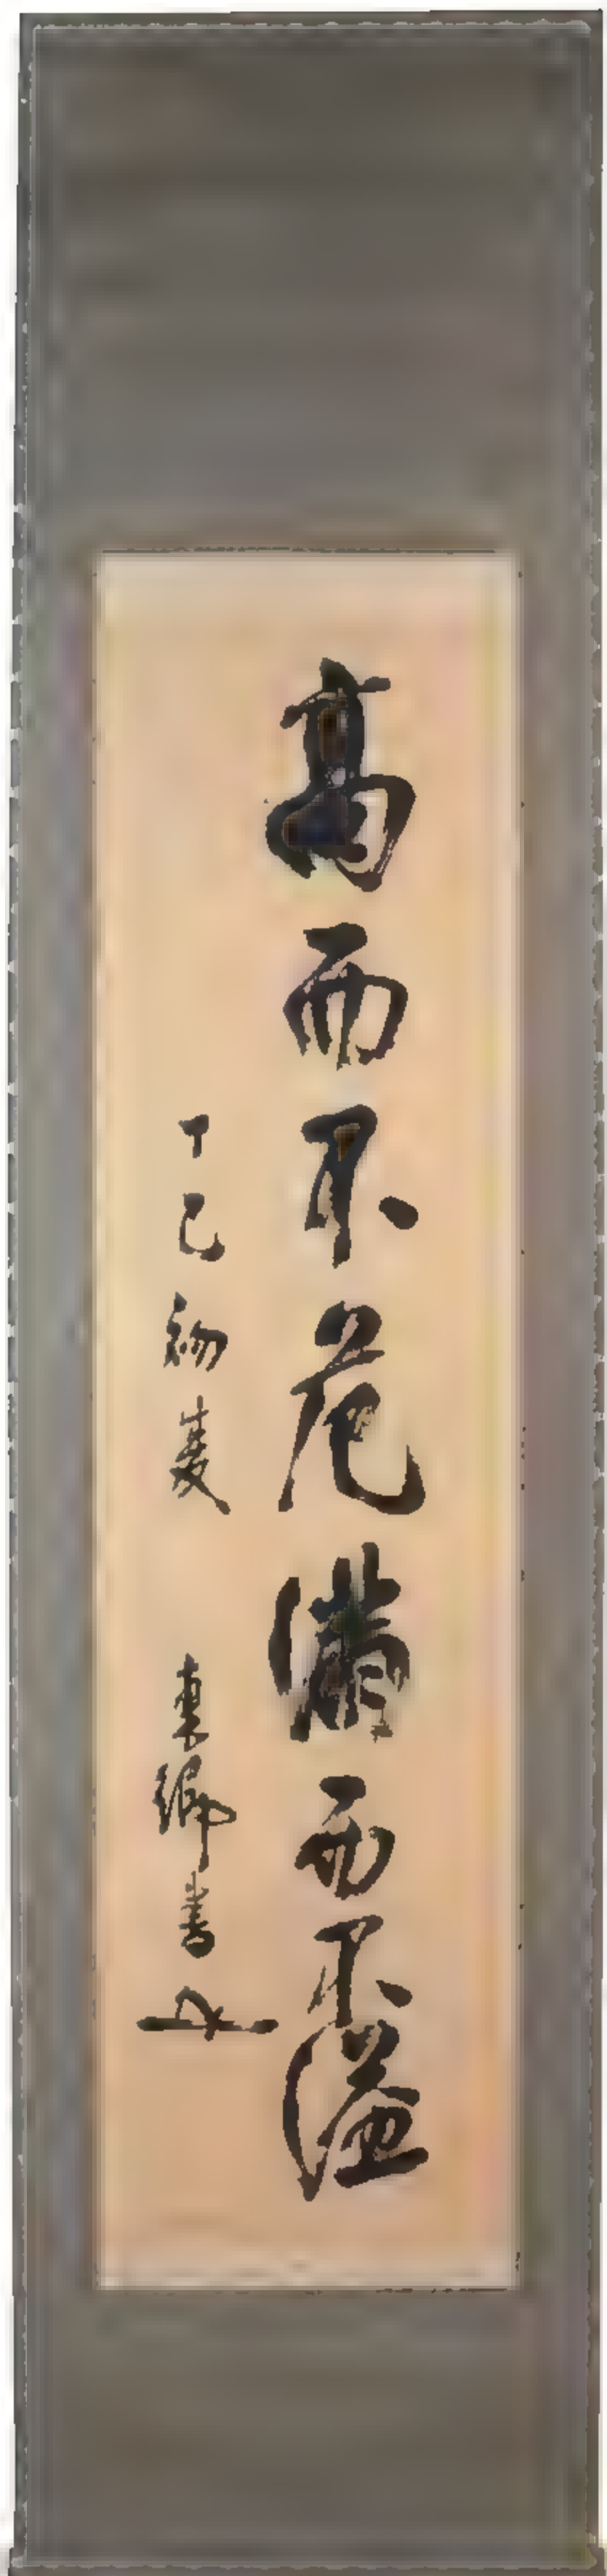 高而不危満而不溢
丁己初夏 東郷書